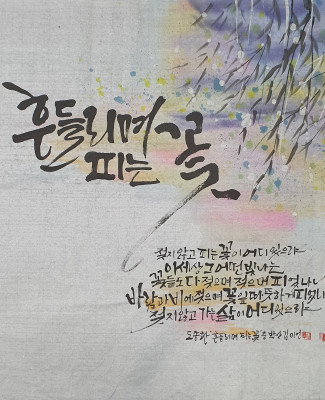 흔들리며
피는 꽃
젖지 않고 피는 꽃이 어디 있으랴
이 세상 그 어떤 빛나는
꽃들도 다 젖으며 젖으며 피었나니
바람과 비에 젖으며 꽃잎 따뜻하게 피웠나니
젖지 않고 가는 삶이 어디 있으랴
도종환 흔들리며 피는 꽃 중